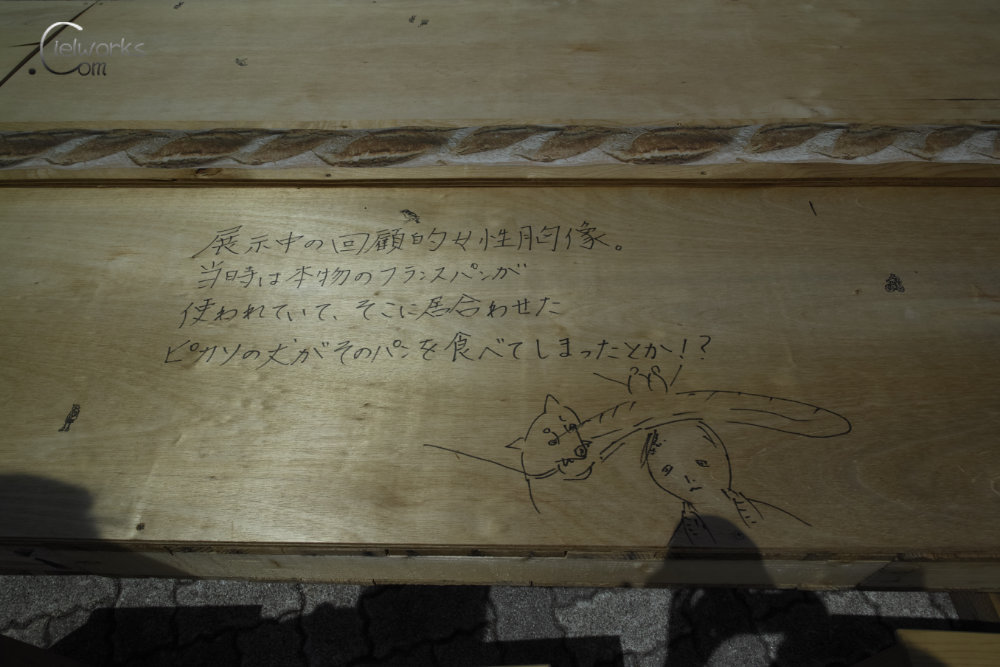 Cielworks
.Com
展示中の回顧的女性胸像。
当時は本物のフランスパンが
使われていて、そこに居合わせた
ピカソの犬がそのパンを食べてしまったとか!?